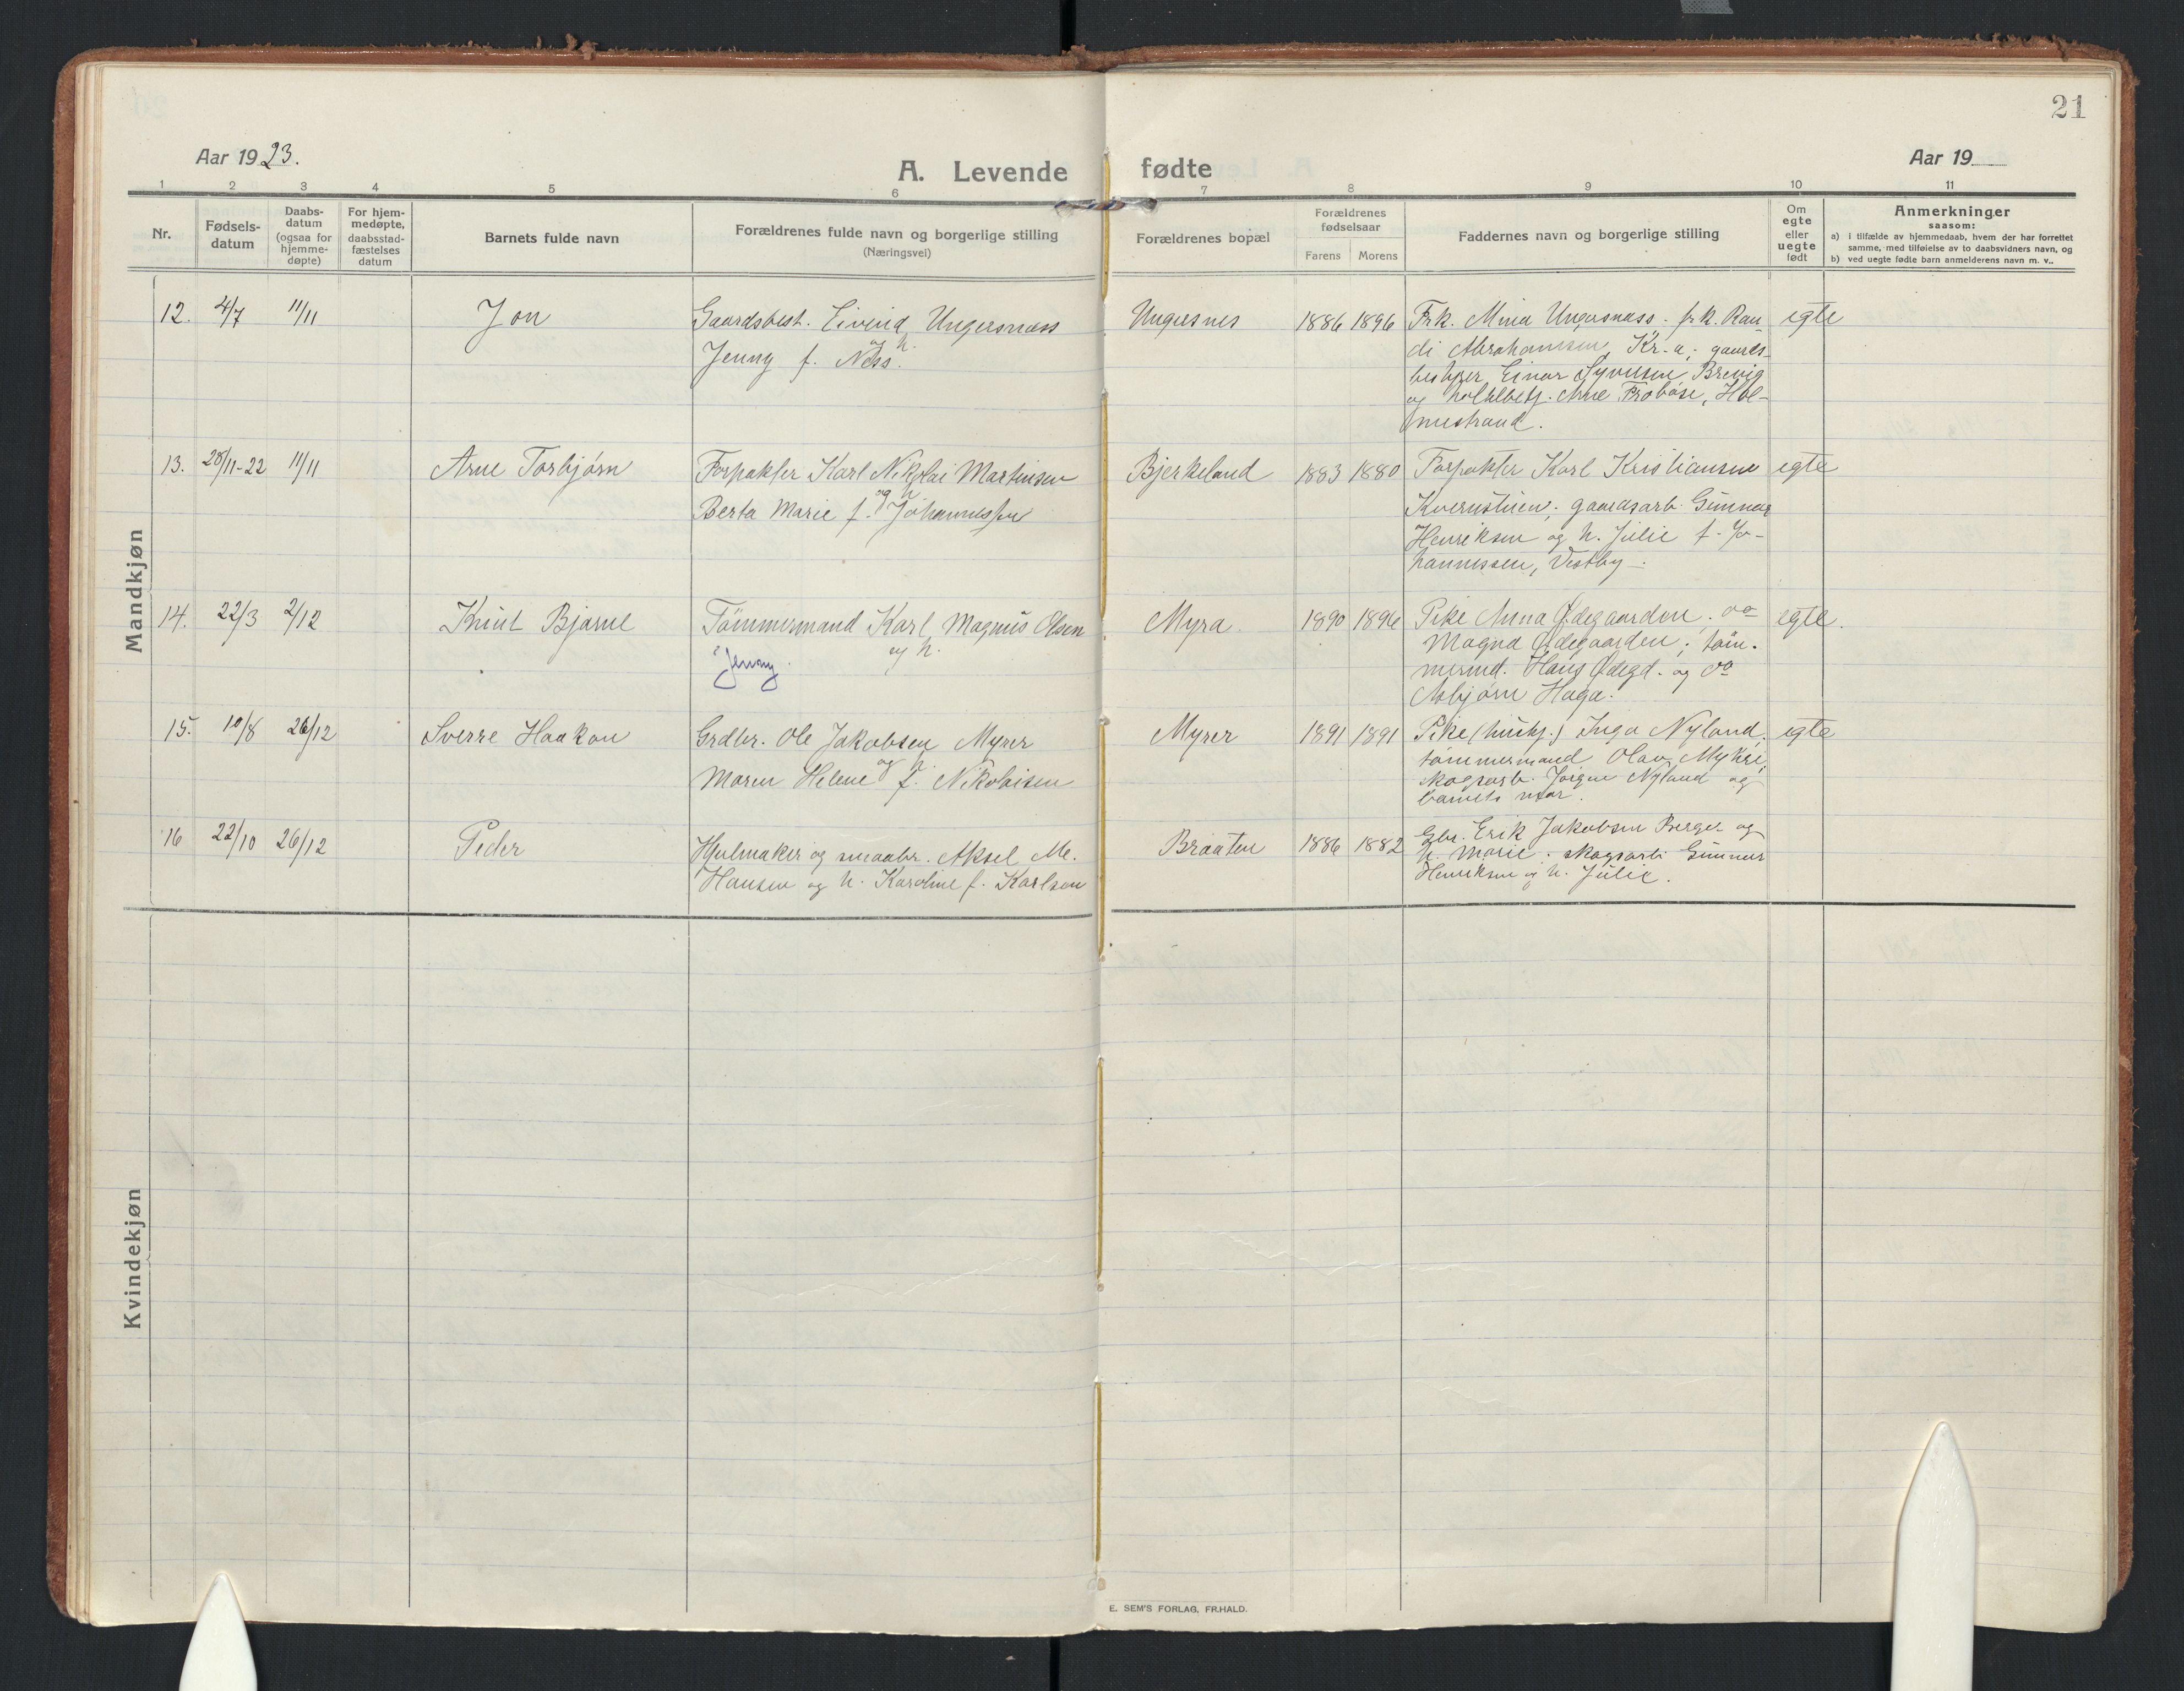 21
Aar 1923.
A. Levende fødte
Aar 19
1 2 3 4 5 6 7 8 9 10 11
Nr.
Fødsels-
datum
Daabs-
datum
(ogsaa for
hjemme-
døpte)
For hjem-
medøpte,
daabsstad-
fæstelses
datum
Barnets fulde navn
Forældrenes fulde navn og borgerlige stilling
(Næringsvei)
Forældrenes bopæl
Forældrenes
fødselsaar
Farens Morens
Faddernes navn og borgerlige stilling
Om
egte
eller
uegte
født
Anmerkninger
saasom:
a) i tilfælde av hjemmedaab, hvem der har forrettet
samme, med tilføielse av to daabsvidners navn, og
b) ved uegte fødte barn anmelderens navn m. v..
Mandkjøn
12. 4/7 11/11 Jon
Gaardsbest. Eivind Ungersnæss
og h.
Jenny f. Ness.
Ungersnes 1886 1896
Frk. Mina Ungersnæss. frk. Ran
di Abrahamsen, Kr.a; gaards-
bestyrer Einar Syversen Brevig
og Arne Frobøse, Hol-
mestrand.
egte
13. 28/11-22 11/11 Arne Torbjørn
Forpakter Karl Nikolai Martinsen
og h
Berta Marie f. Johannessen
Bjerkeland 1883 1880
Forpakter Karl Kristiansen
Kvernstuen; gaardsarb. Gunnar
Henriksen og h. Julie f. Jo-
hannessen, Vestby.
egte
14. 22/3 2/12 Knut Bjarne
Tømmermand Karl Magnus Olsen
og h.
Jenny.
Myra. 1890 1896
Pike Anna Ødegaarden. do
Magna Ødegaarden; tøm-
mermd. Hans Ødegd. og do
Asbjørn Haga.
egte.
15. 10/8 26/12 Sverre Haakon
Grdbr. Ole Jakobsen Myrer
og h.
Maren Helene f. Nikolaisen
Myrer 1891 1891
Pike (hushj.) Inga Nyland,
tømmermand Olav Mykri,
skogsarb. Jørgen Nyland og
barnets mor.
egte
16 22/10 26/12 Peder
Hjulmaker og smaabr. Aksel M.
Hansen og h. Karoline f. Karlsen
Braaten 1886 1882
Gbr. Erik Jakobsen Berger og
h. Marie; skogsarb. Gunnar
Henriksen og h. Julie.
Kvindekjøn
E. SEM'S FORLAG, FR.HALD.